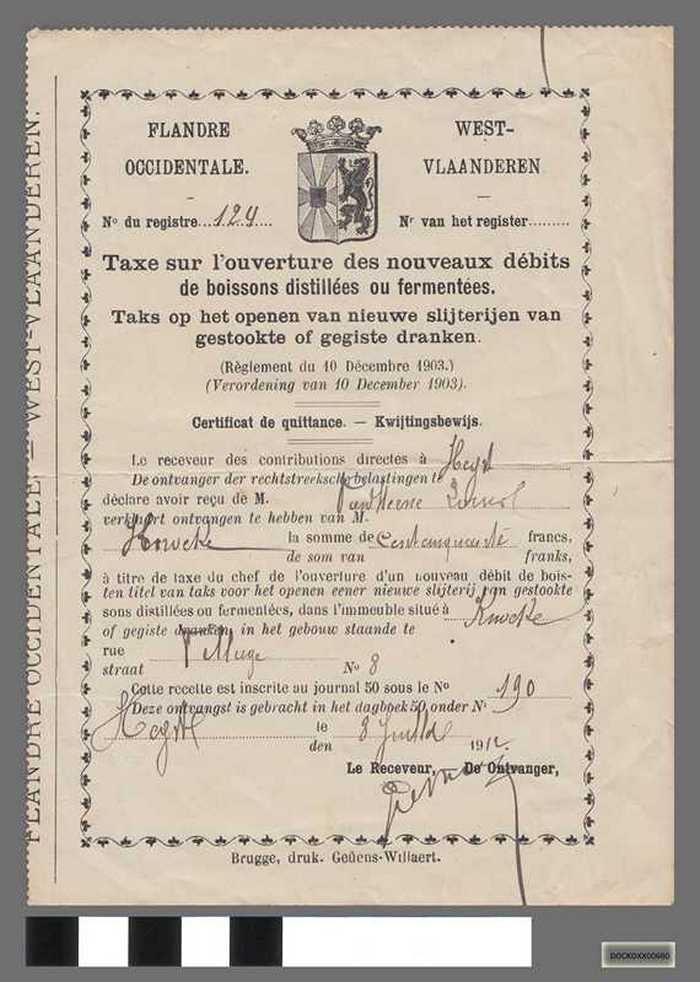 FLANDRE OCCIDENTALE. — WEST-VLAANDEREN.
FLANDRE
OCCIDENTALE.
WEST-
VLAANDEREN
No du registre...124....
Nr van het register.........
Taxe sur l'ouverture des nouveaux débits
de boissons distillées ou fermentées.
Taks op het openen van nieuwe slijterijen van
gestookte of gegiste dranken.
(Règlement du 10 Décembre 1903.)
(Verordening van 10 December 1903).
Certificat de quittance. — Kwijtingsbewijs.
Le receveur des contributions directes à Heyst
De ontvanger der rechtstreeksche belastingen te
déclare avoir reçu de M.
verklaart ontvangen te hebben van M.
Knocke la somme de francs,
de som van franks,
à titre de taxe du chef de l'ouverture d'un nouveau débit de bois-
ten titel van taks voor het openen eener nieuwe slijterij van gestookte
sons distillées ou fermentées, dans l'immeuble situé à Knocke
of gegiste dranken, in het gebouw staande te
rue Village
straat No 8
Cette recette est inscrite au journal 50 sous le No 190
Deze ontvangst is gebracht in het dagboek 50 onder Nr
Heyst le 8 1912.
den
Le Receveur, — De Ontvanger,
Brugge, druk. Geûens-Willaert.
DOCKDXX00660